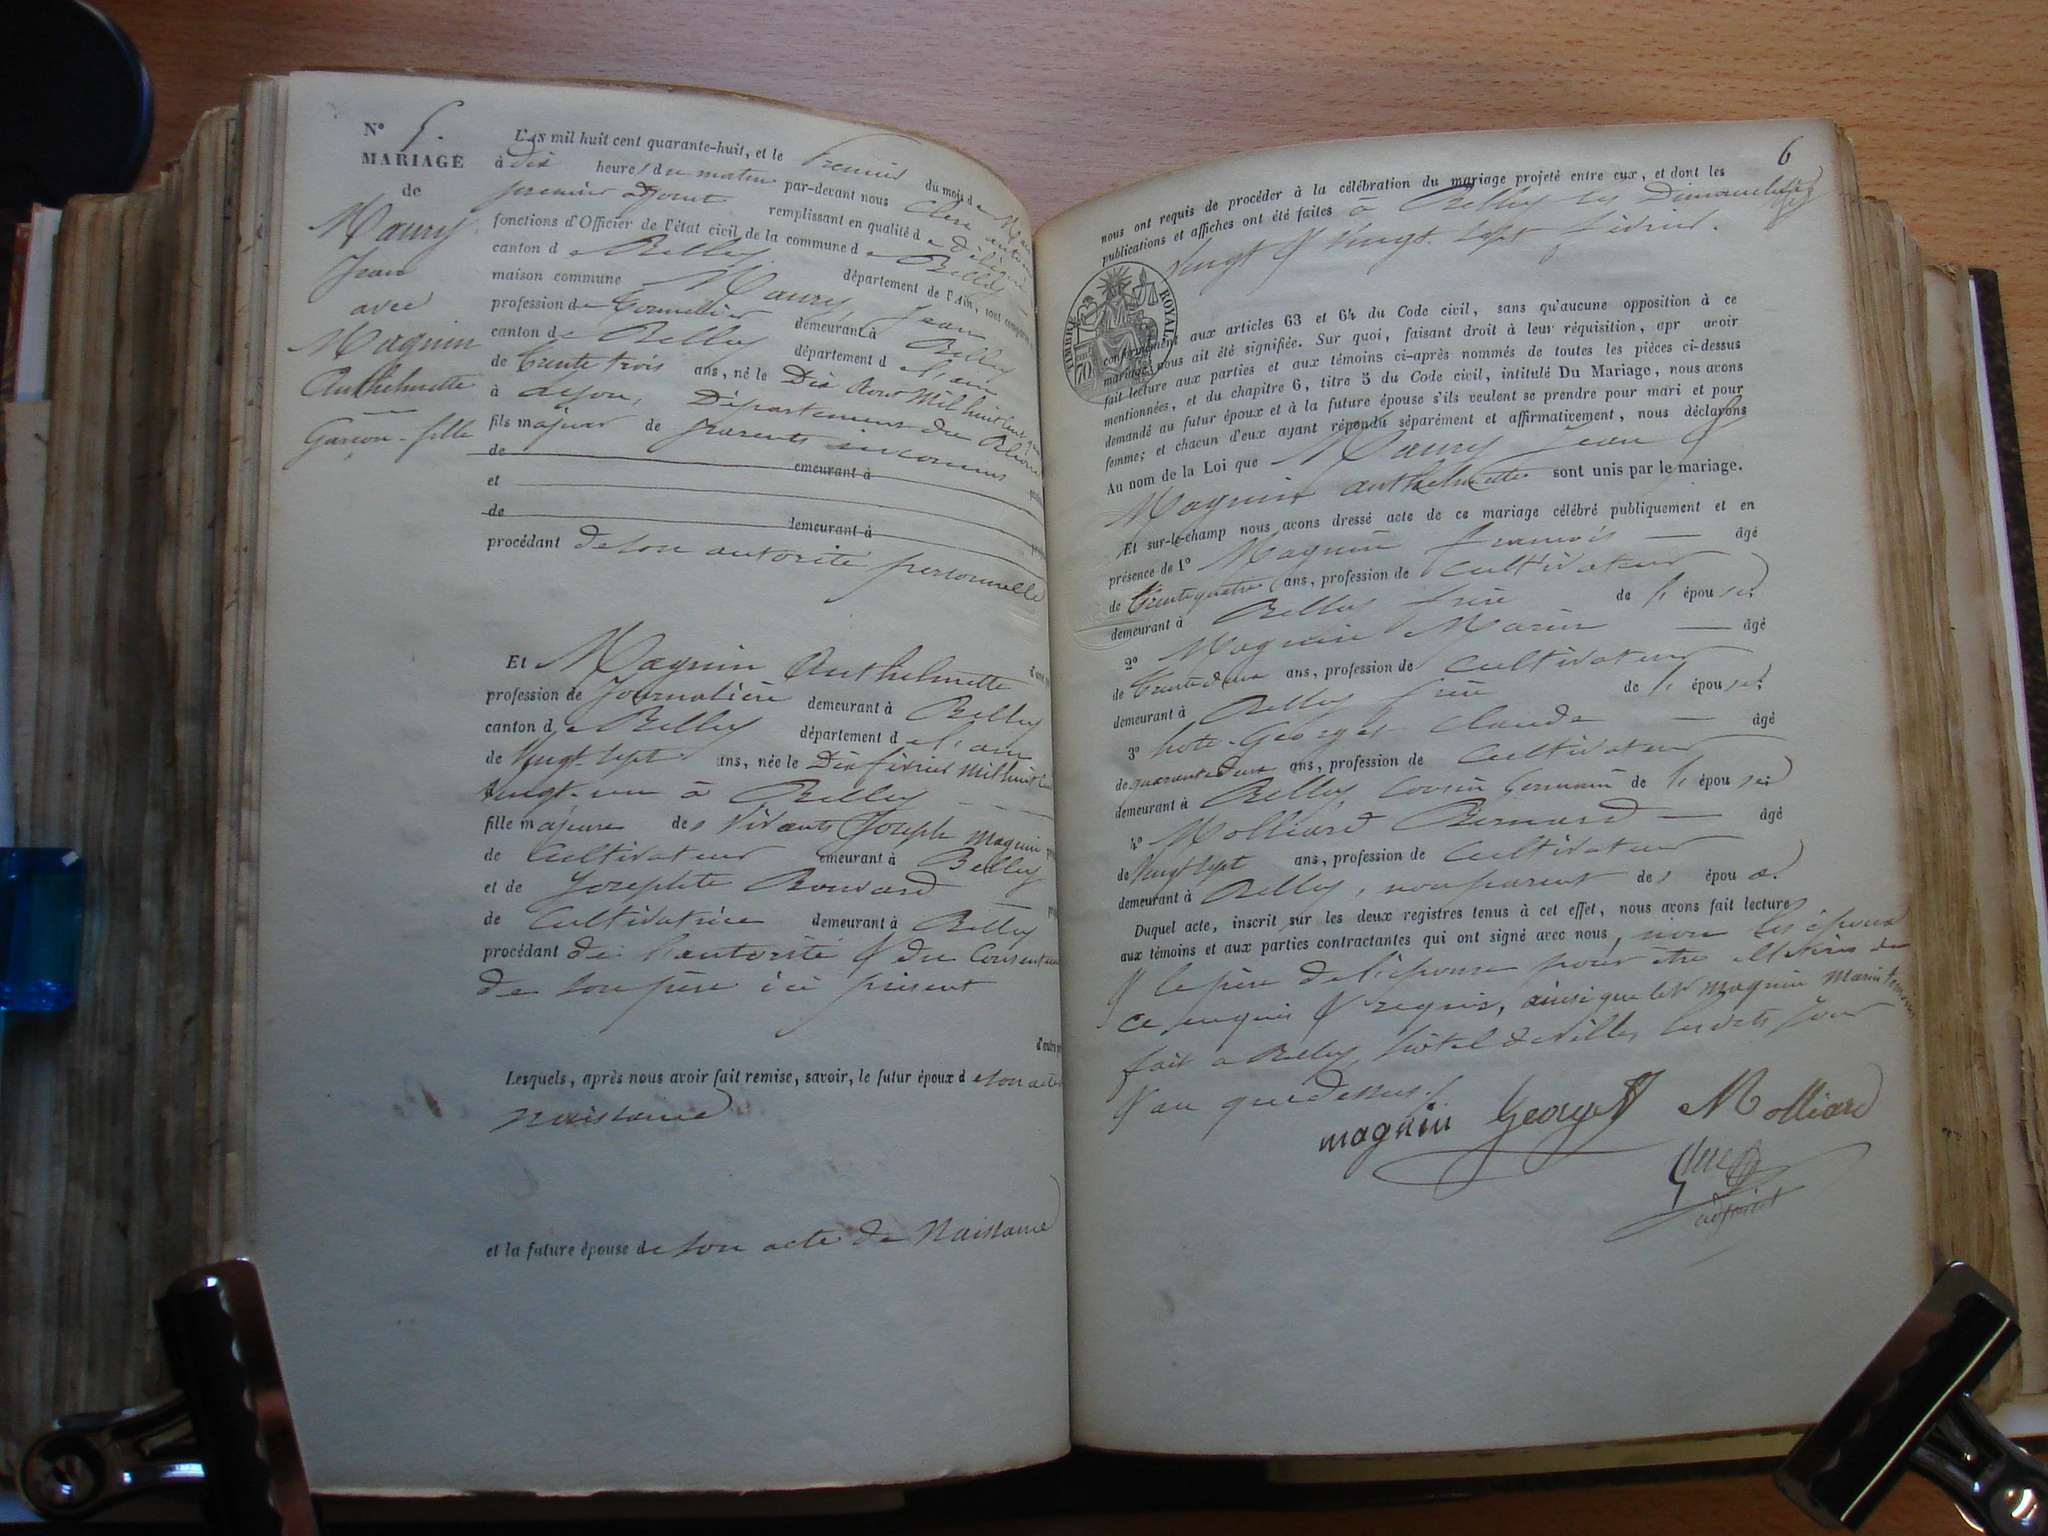 N° 5.
MARIAGE
de
Maury
Jean
avec
Magnin
Anthelmette
Garçon - fille
L'AN mil huit cent quarante-huit, et le Premier du mois de
à dix heures du matin par-devant nous
premier adjoint remplissant en qualité de délégué
fonctions d'Officier de l'état civil de la commune de Belley
canton de Belley département de l'Ain, sont comparus
maison commune Maury Jean
profession de demeurant à Belley
canton de Belley département de l'ain
de trente trois ans, né le Dix Aout Mil huit cent
à Lyon, Département du Rhône
fils majeur de parents inconnus
de emeurant à
et
de demeurant à
procédant de son autorité personnelle
Et Magnin Anthelmette
profession de Journalière demeurant à Belley
canton de Belley département de l'ain
de Vingt sept ans, née le Dix février Mil huit cent
vingt-un à Belley
fille majeure des vivants Joseph Magnin
de Cultivateur emeurant à Belley
et de Josephte Bouvard
de Cultivatrice demeurant à Belley
procédant de l'autorité & du Consentement
de son père ici présent
d'autre
Lesquels, après nous avoir fait remise, savoir, le futur époux de son acte
Naissance
et la future épouse de son acte de Naissance
6
nous ont requis de procéder à la célébration du mariage projeté entre eux, et dont les
publications et affiches ont été faites à Belley les Dimanches
vingt & vingt-sept février.
TIMBRE ROYAL
70
conformément aux articles 63 et 64 du Code civil, sans qu'aucune opposition à ce
mariage nous ait été signifiée. Sur quoi, faisant droit à leur réquisition, apr avoir
fait lecture aux parties et aux témoins ci-après nommés de toutes les pièces ci-dessus
mentionnées, et du chapitre 6, titre 5 du Code civil, intitulé Du Mariage, nous avons
demandé au futur époux et à la future épouse s'ils veulent se prendre pour mari et pour
femme; et chacun d'eux ayant répondu séparément et affirmativement, nous déclarons
Au nom de la Loi que Maury Jean &
Magnin anthelmette sont unis par le mariage.
Et sur-le-champ nous avons dressé acte de ce mariage célébré publiquement et en
présence de 1° Magnin françois âgé
de trente quatre ans, profession de cultivateur
demeurant à Belley frère de l' épouse.
2° Magnin Marin âgé
de trente deux ans, profession de cultivateur
demeurant à Belley frère de l' épouse.
3° Georges Claude âgé
de quarante deux ans, profession de cultivateur
demeurant à Belley, Cousin Germain de l' épouse.
4° Molliard Bernard âgé
de vingt sept ans, profession de cultivateur
demeurant à Belley, non parent des épou x.
Duquel acte, inscrit sur les deux registres tenus à cet effet, nous avons fait lecture
aux témoins et aux parties contractantes qui ont signé avec nous, non les époux
& le père de l'épouse pour être illétirés de
ce enquis & requis, ainsi que led Magnin Marin témoin
fait à Belley, hôtel de ville, les dits jour
& an que dessus.
magnin George Molliard
adjoint